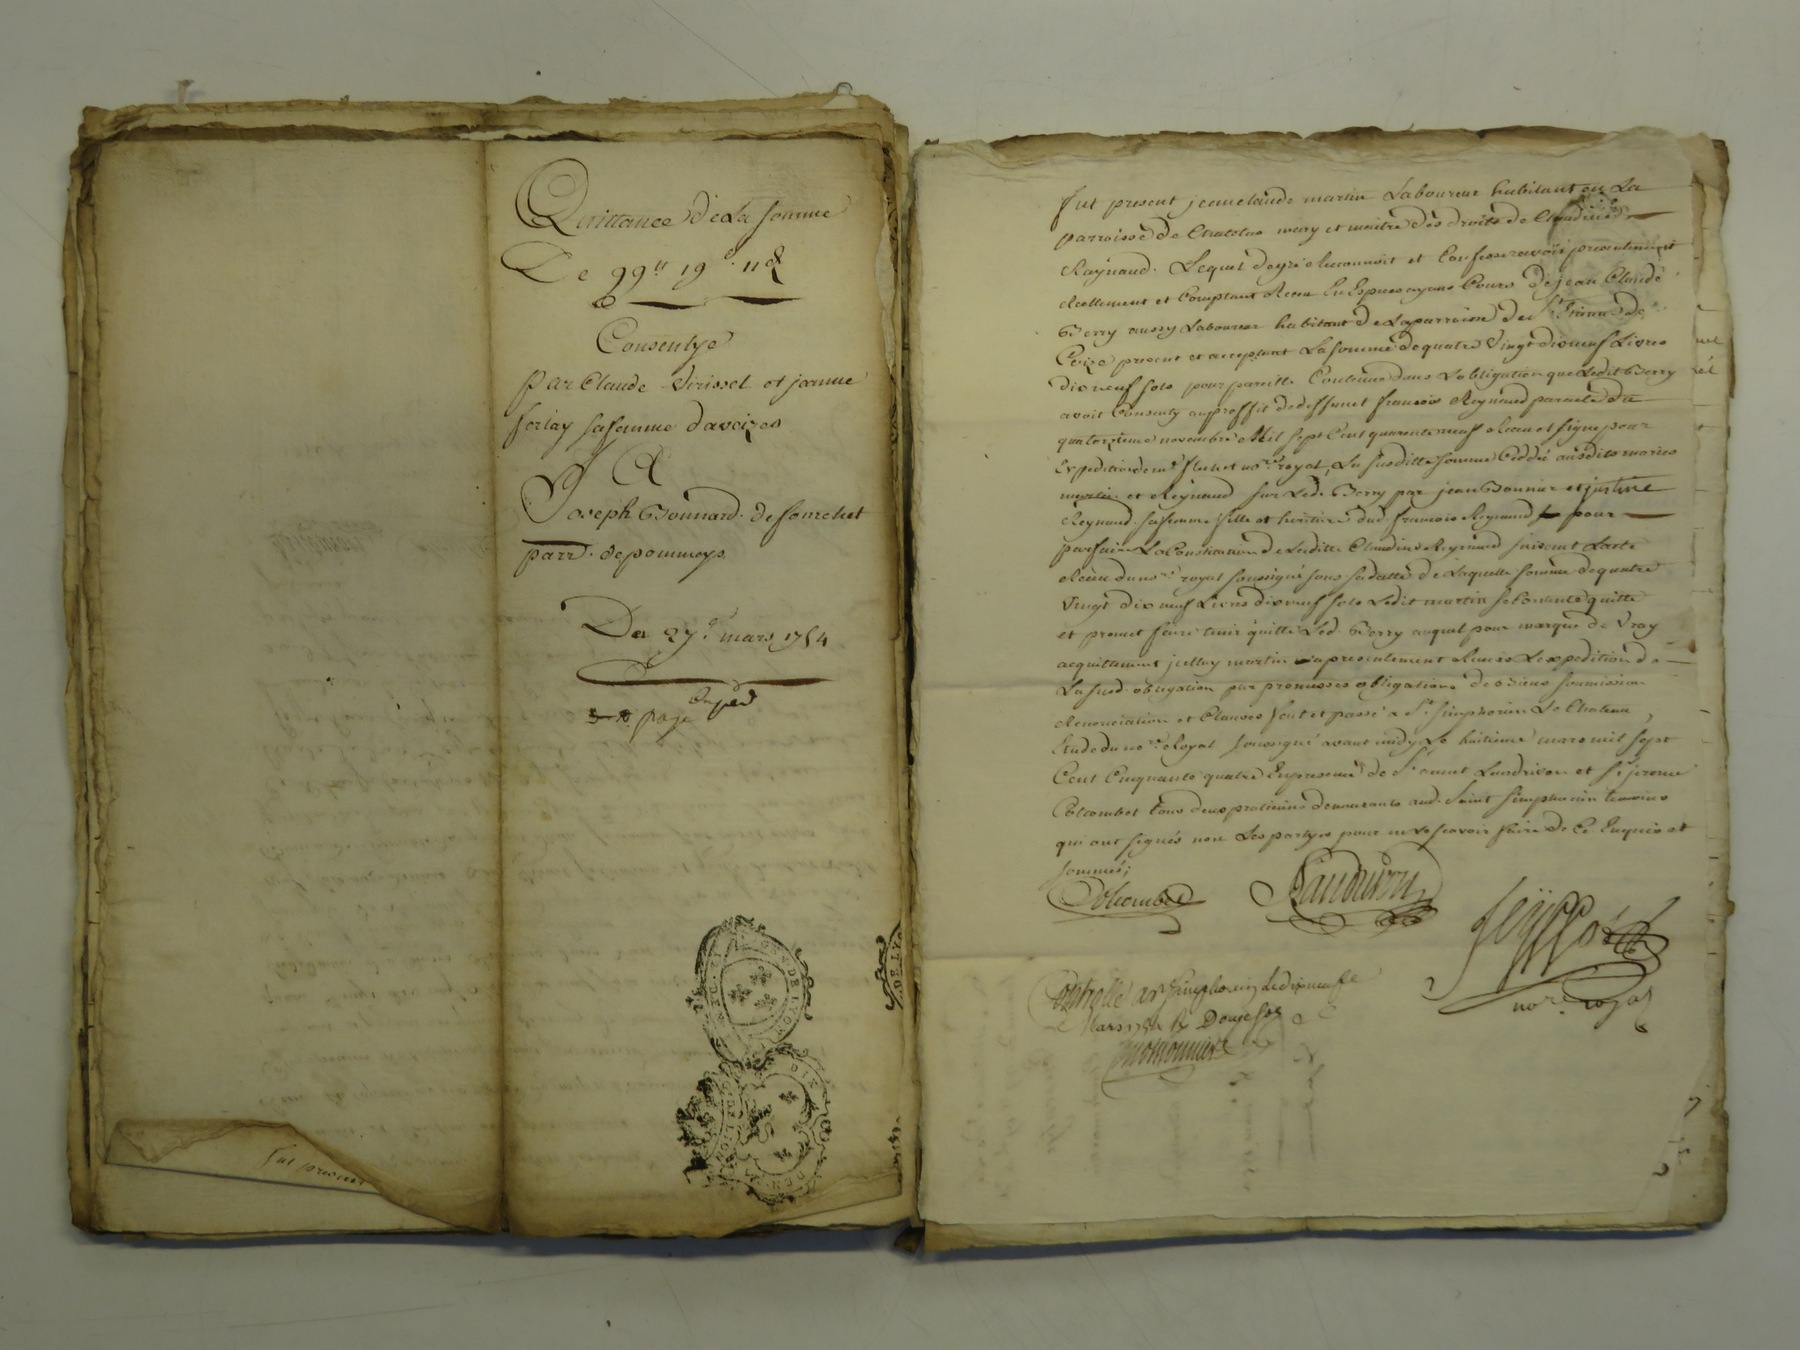 Quittance de La somme
De 99ᵗᵗ 19ˢ 11ᵈ
Consentye
par Claude Virissel et jeanne
ferlay sa femme d'aveizes
A
Joseph Bonnard de fourchet
parr. de pommeys
Du 27ᵉ mars 1754
Exped
page
fut present
fut present jean claude martin Laboureur habitant en La
parroisse de Chatelus mary et maitre des droits de Claudine
Raynaud. Lequel de gré reconnoit et Confesse avoir presentement
reellement et Comptant Receu En Espèces ayans Cours de jean Claude
Berry aussy Laboureur habitant de La parroisse de Sᵗ
Coize present et acceptant La somme de quatre Vingt dix neuf Livres
dix neuf sols pour pareille Contenue dans L'obligation que Ledit Berry
avoit Consenty au proffit de deffunct françois Reynaud par acte du
quatorzieme novembre Mil sept Cent quarante neuf Receu et signé pour
Expedition de mᵉ nʳᵉ royal, La susditte somme Ceddée ausdits mariés
martin et Reynaud sur Led. Berry par jean Bonnier et justine
Reynaud sa femme fille et heritiere dud. françois Reynaud pour
parfaire La Constitution de Laditte Claudine Reynaud suivant L'acte
Receu du nʳᵉ royal soussigné sous sa datte de Laquelle somme de quatre
Vingt dix neuf Livres dix neuf sols Ledit martin se Contente quitte
et promet faire tenir quitte Led. Berry auquel pour marque de Vray
acquittement icelluy martin a presentement Remis L'expedition de
La susd. obligation par promesses obligations de biens soumissions
Renonciations et Clauses fait et passé a Sᵗ simphorien Le Chateau,
Etude du noʳᵉ Royal soussigné avant midy Le huitieme mars mil sept
Cent Cinquante quatre En presence de Sʳ Landrivon et Sʳ jerome
Colcombet tous deux praticiens demeurants aud. Saint simphorien temoins
qui ont signés non Les partyes pour ne Le scavoir faire de Ce Enquis et
sommés;
Colcombet Landrivon
noʳᵉ royal
Controllé a sᵗ Simphorien le dix neufe
Mars 1754 R Douze sols